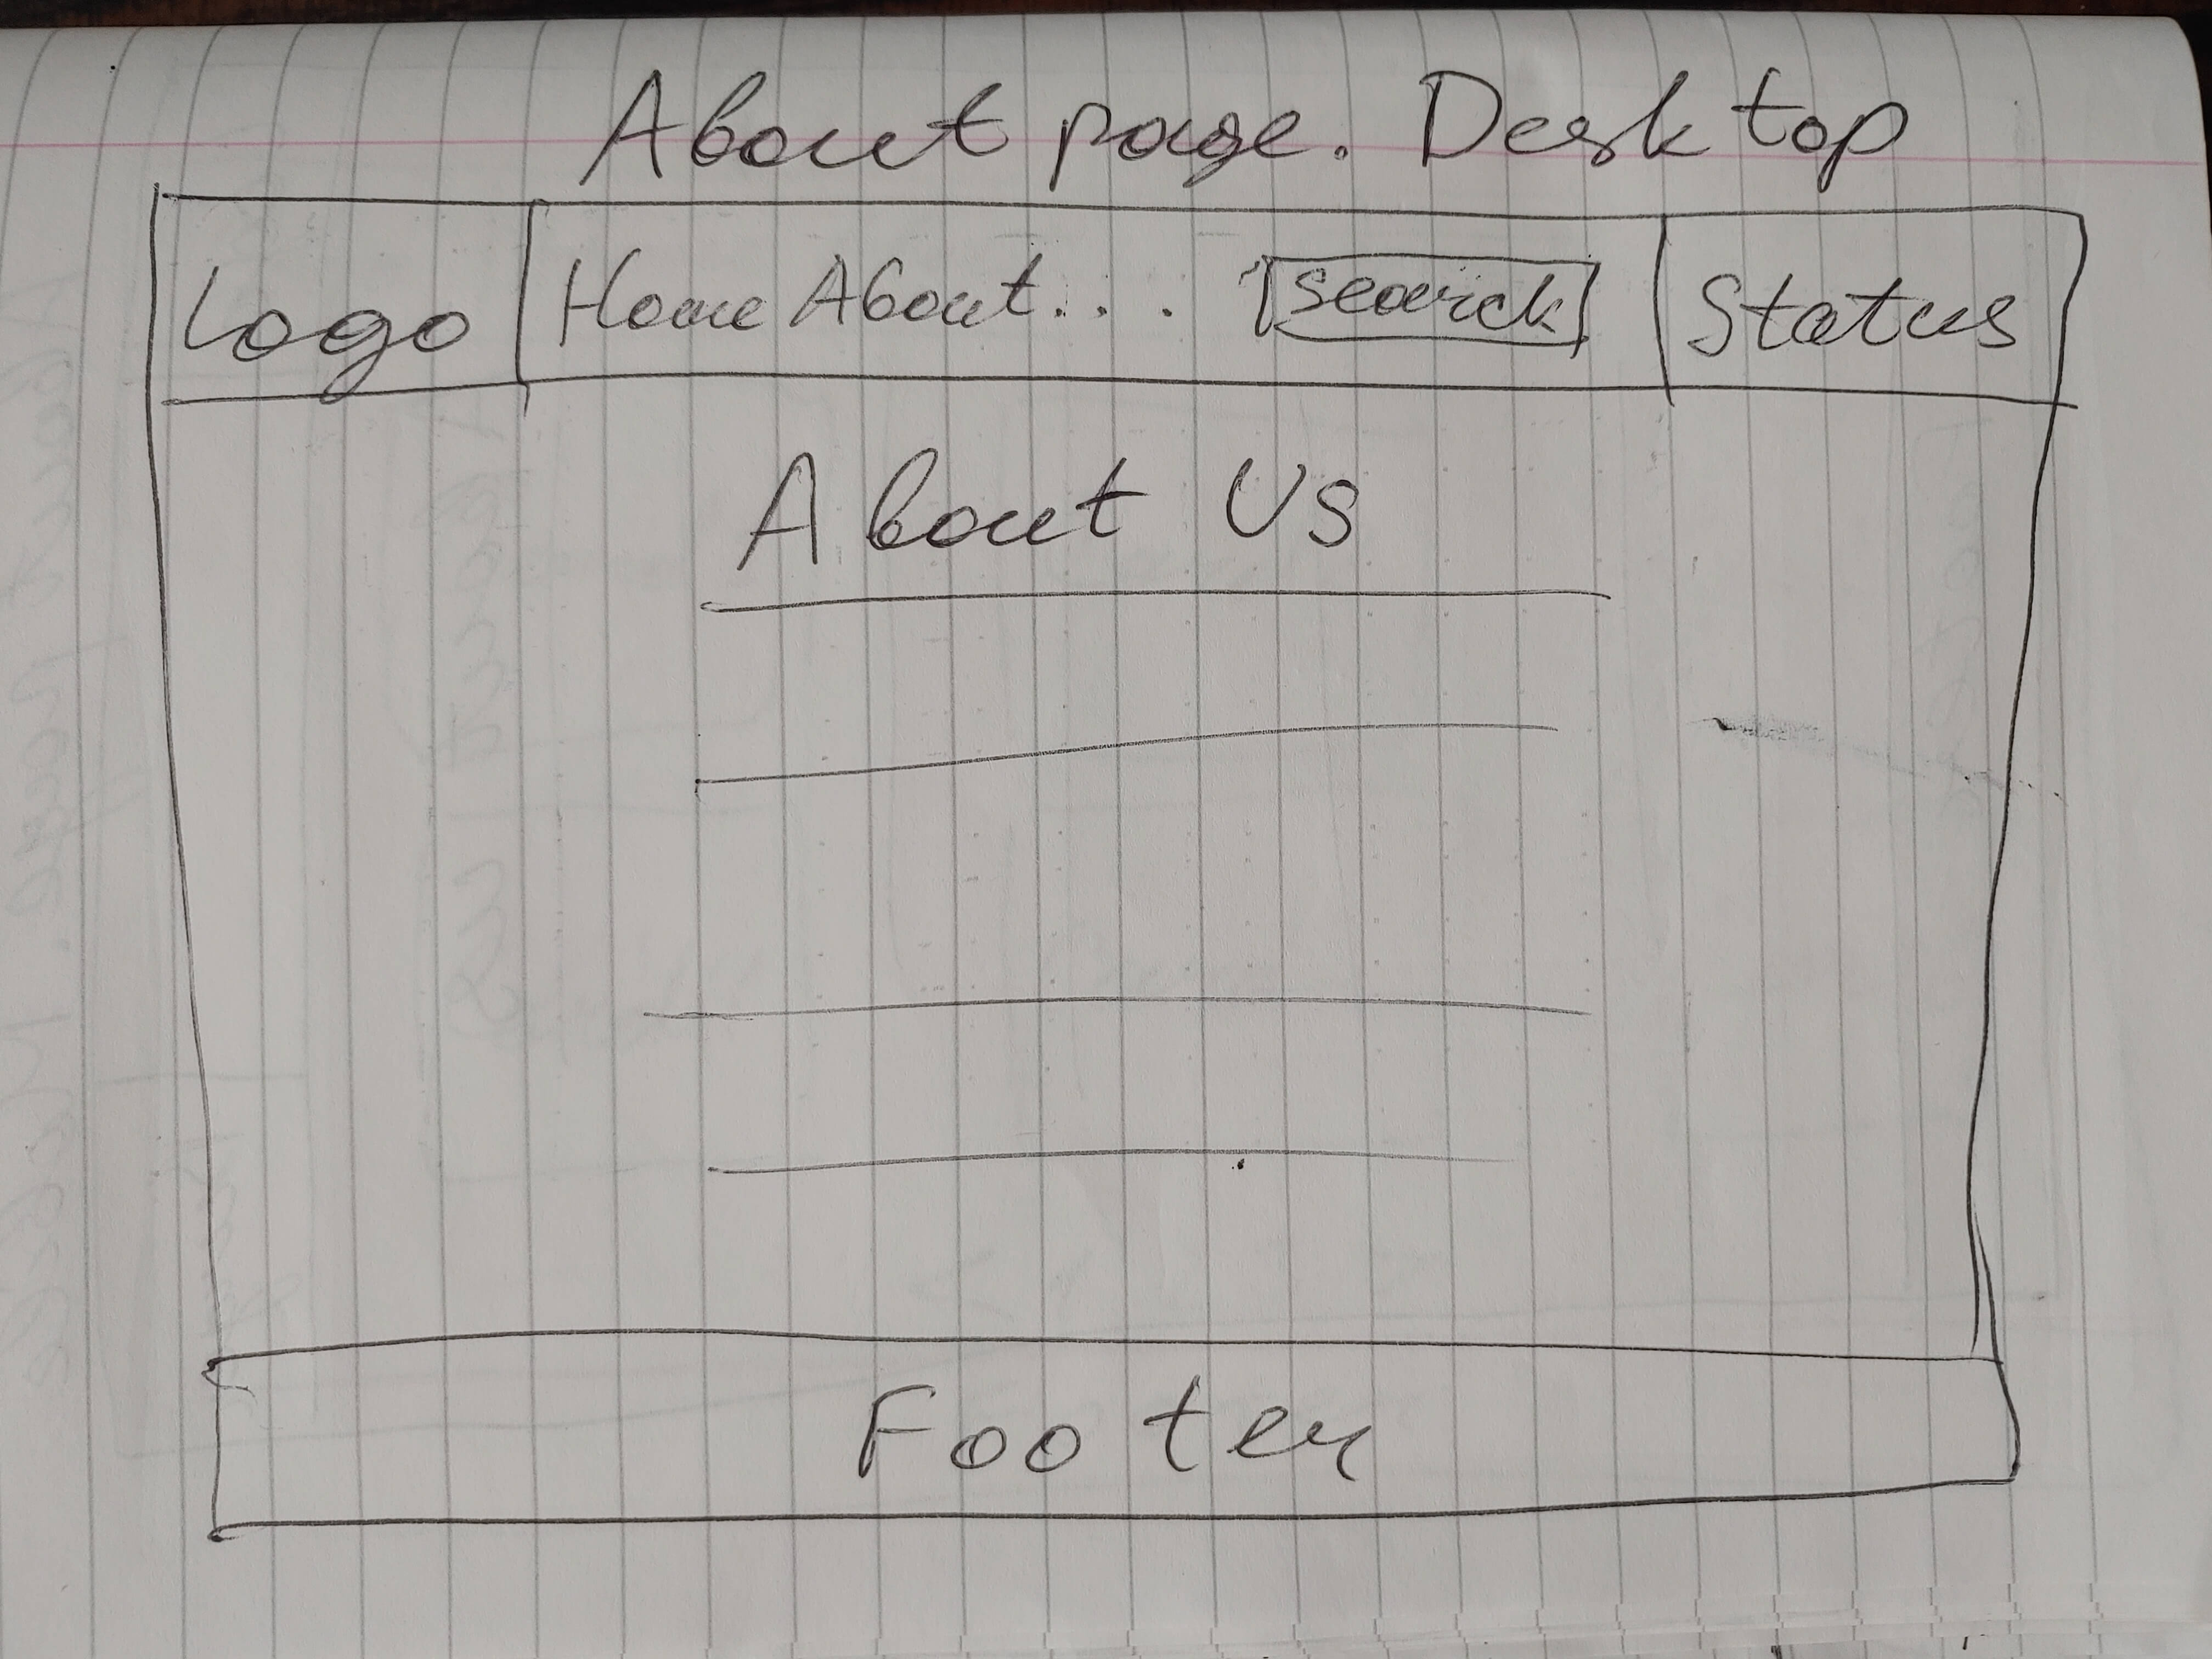 About page. Desktop
Logo Home About... search Status
About Us
Footer